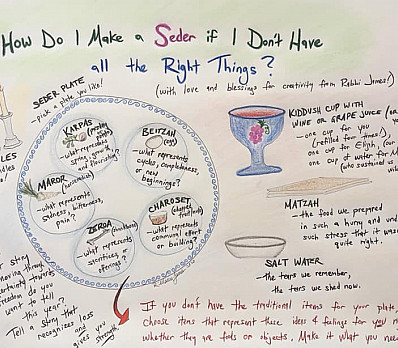 How Do I Make a Seder if I Don't Have
all the Right Things?
(with love and blessings for creativity from Rabbi James!)
SEDER PLATE
-pick a plate you like!
KARPAS
-what represents
spring, growth,
and flourishing?
BEITZAH
(egg)
-what represents
cycles, completeness,
or new
beginnings?
MAROR
(horseradish)
-what represents
sadness, bitterness,
pain?
CHAROSET
-what represents
communal effort
or building?
ZEROA
-what represents
sacrifices or
offerings?
KIDDUSH CUP WITH
WINE OR GRAPE JUICE (or
-one cup for you
(refilled four times!),
one cup for Elijah, (our
one cup of water for M
(who sustained us
MATZAH
-the food we prepared
in such a hurry and und
such stress that it wasn
quite right.
SALT WATER
-the tears we remember,
the tears we shed now.
LES
ndles
r story
moving through
certainty towards
freedom do you
want to tell
this year?
Tell a story that
recognizes loss
and
gives you
strength
If you don't have the traditional items for your plate,
choose items that represent these ideas & feelings for you no
whether they are foods or objects. Make it what you need